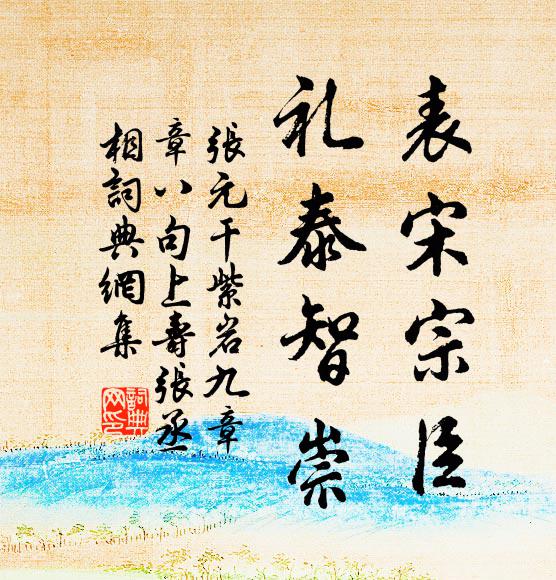 表宋宗臣
礼泰智崇
張元干紫岩九章
章八句上壽張丞
相詞典網集
詞典
网印